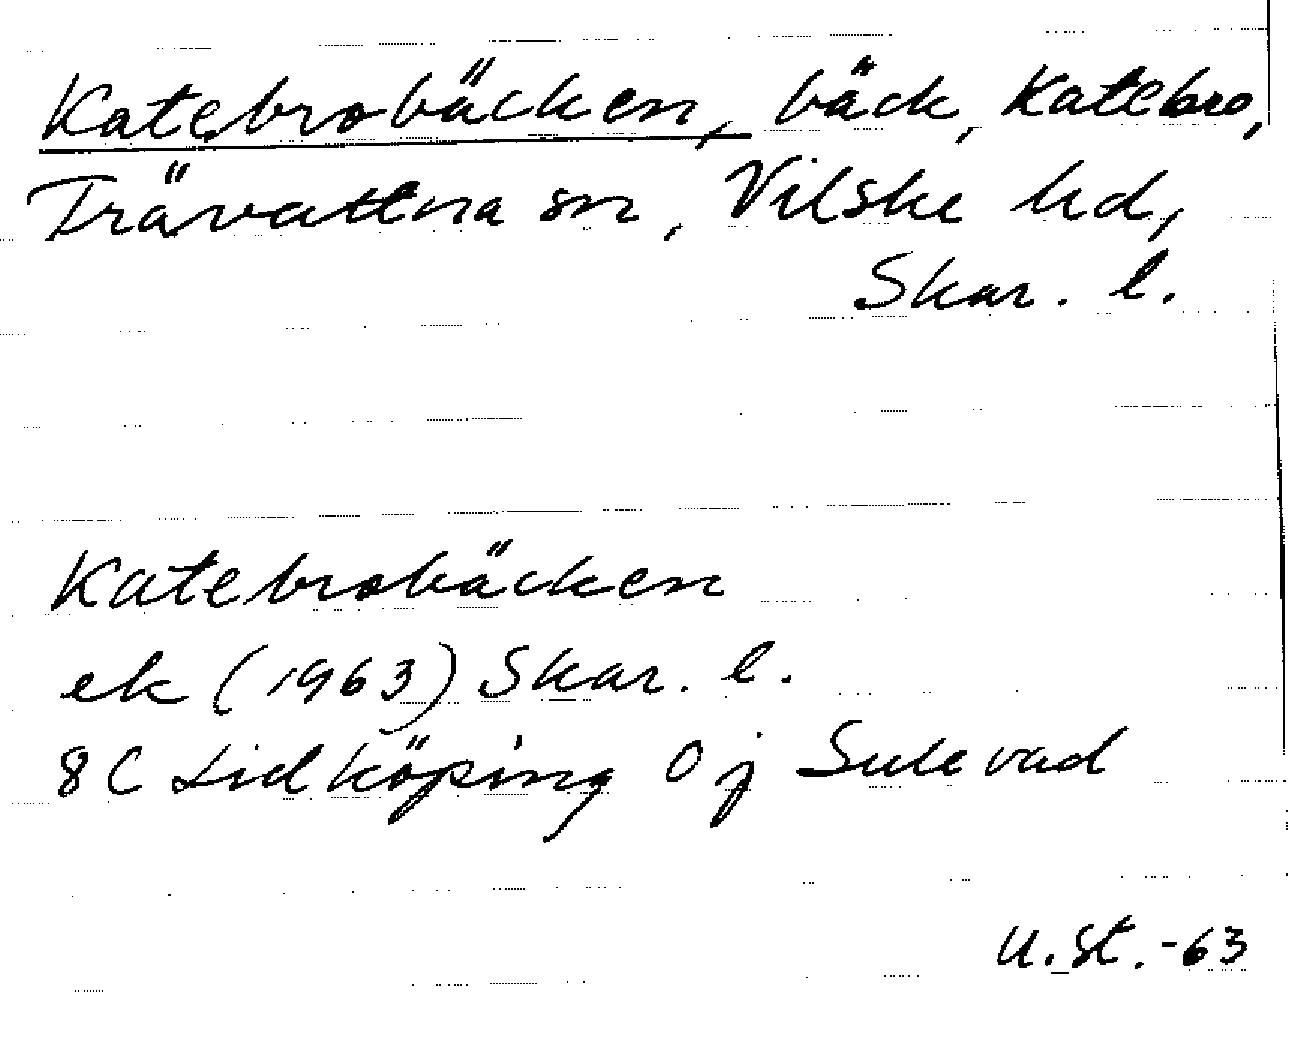 Katebrobäcken, bäck, Katebro,
Trävattna sn, Vilske hd,
Skar. l.
Katebrobäcken
ek (1963) Skar. l.
8C Lidköping 0j Sulevad
U.St.-63